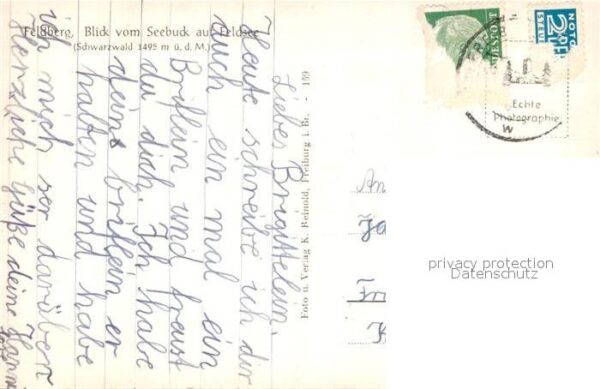 Feldberg, Blick vom Seebuck auf Feldsee
(Schwarzwald 1495 m ü. d. M.)
Liebes Brigittelein,
Heute schreibe ich dir
auch ein mal ein
Briflein und freust
du dich. Ich habe
deins briflein er
halten und habe
ich mich ser darüber
Herzliche Grüße deine Hann
Foto u. Verlag K. Reinold, Freiburg i. Br. - 159
DESPOST
NOTO
2
Echte
Photographie
W
An
Ja
Fr
privacy protection
Datenschutz